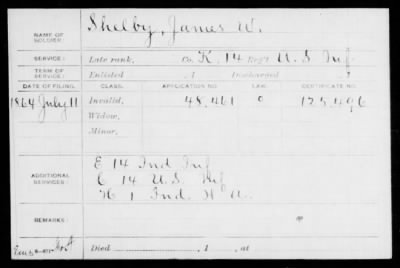 NAME OF SOLDIER: Shelby, James W.
SERVICE: Late rank, Co. K, 14 Reg't U.S. Inf.
TERM OF SERVICE: Enlisted 1 Discharged 1
DATE OF FILING. CLASS. APPLICATION NO. LAW. CERTIFICATE NO.
1864 July 11 Invalid, 48.461 125.496
Widow,
Minor,
ADDITIONAL SERVICES:
E 14 Ind Inf
C 14 U.S. Inf
H 1 Ind. H A.
REMARKS:
Died , 1 , at